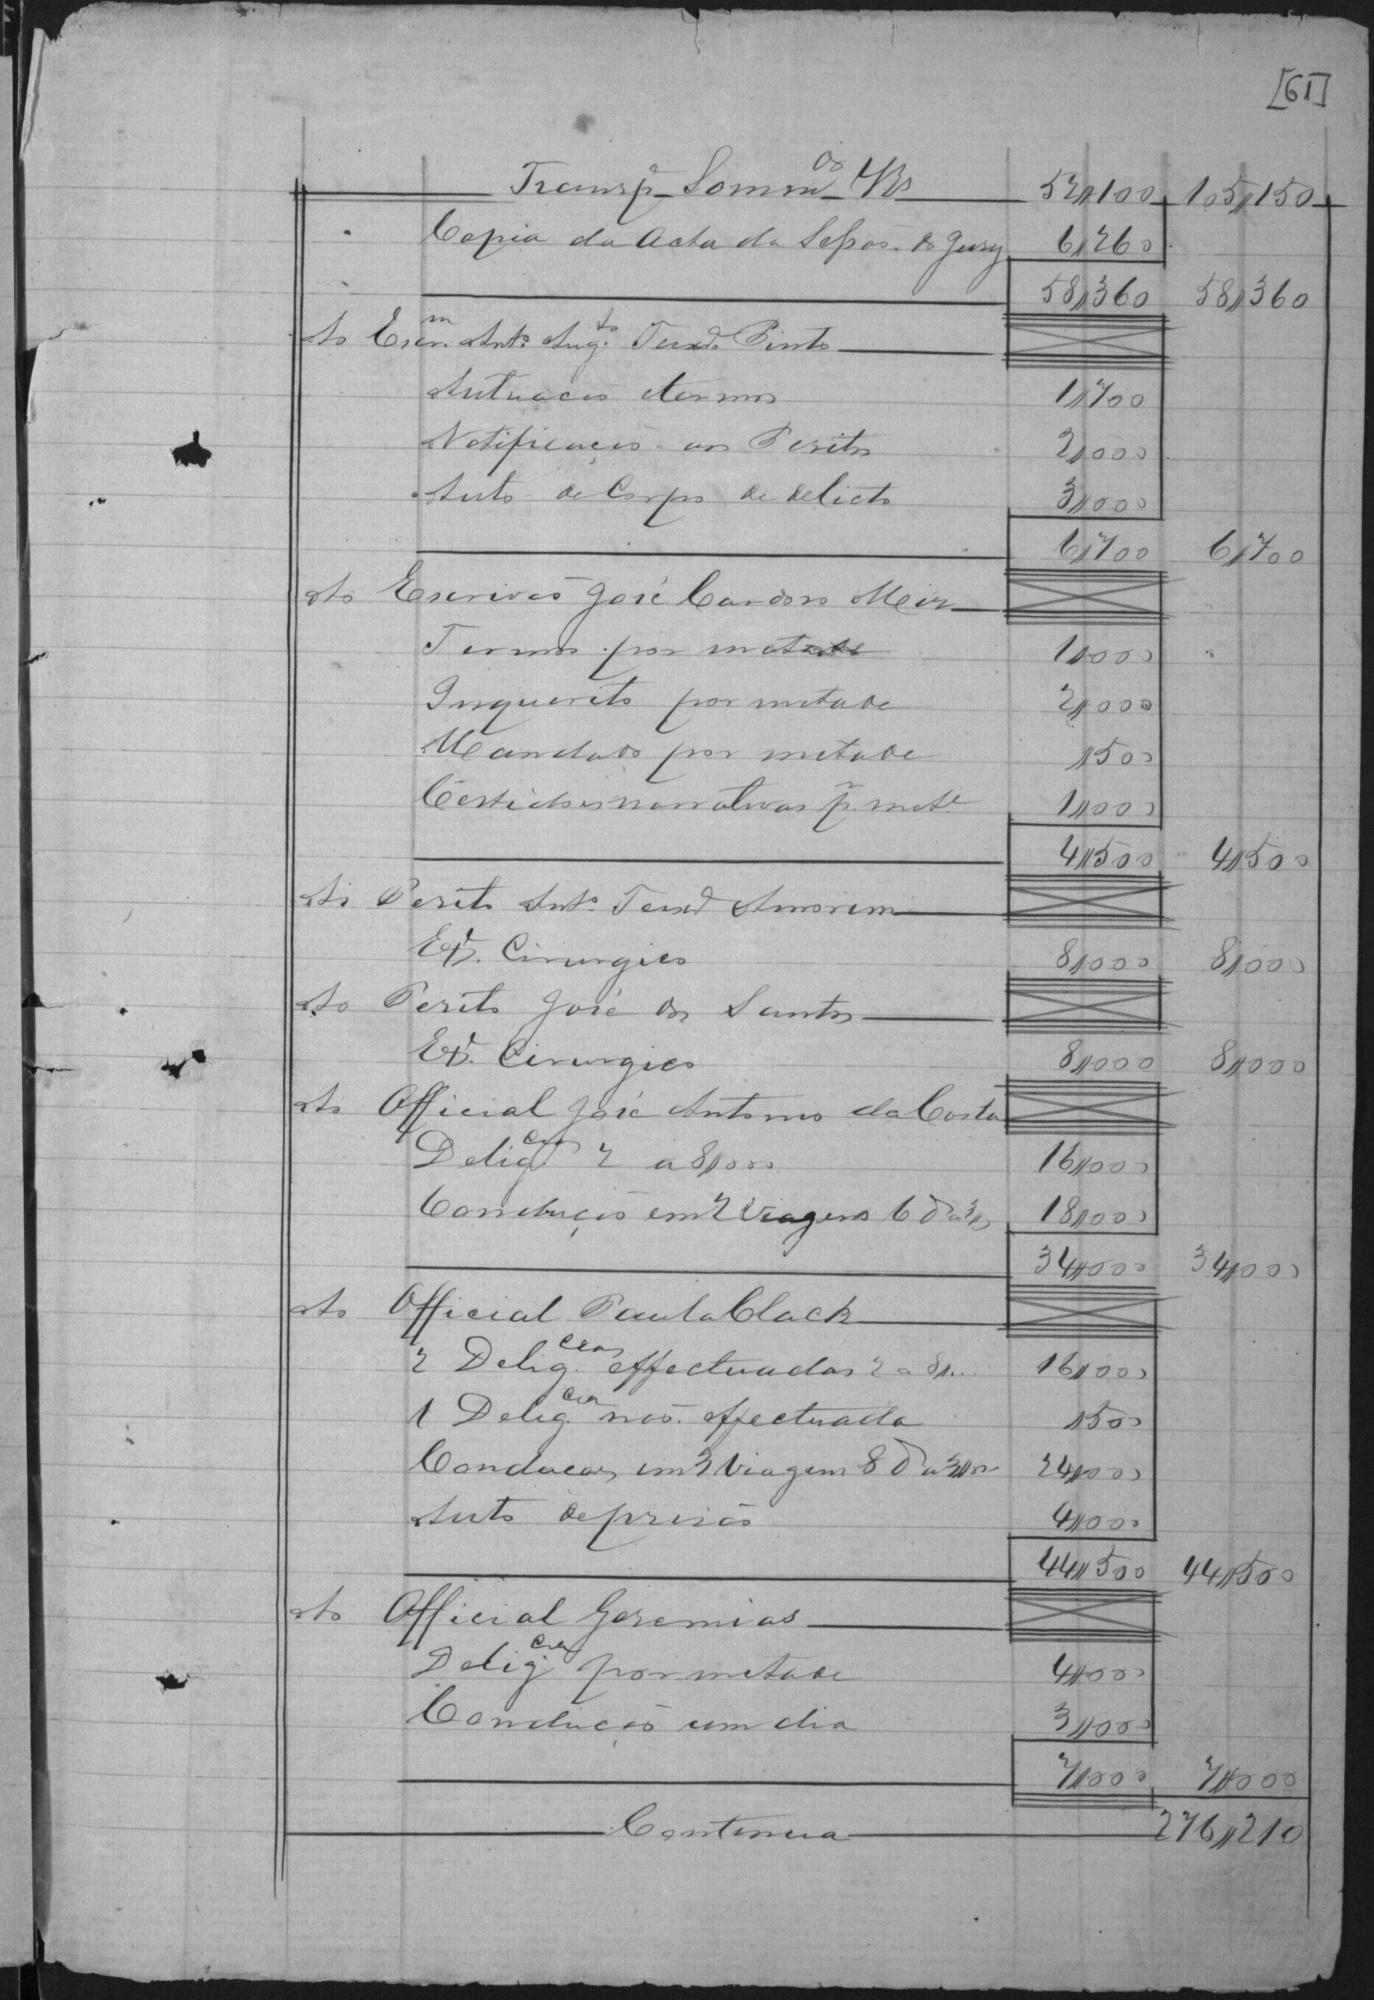 [61]
Transp. Somm. Rs 52,100 105,150
Copia da Acta da Sessão do Jury 6,260
58,360 58,360
Ao Escm. Anto. Augto. Teixa. Pinto
Autuacão e termos 1,700
Notificação aos Peritos 2,000
Auto de Corpo de delicto 3,000
6,700 6,700
Ao Escrivão José Cardoso Meir
Termos por metade 1,000
Inquerito por metade 2,000
Mandado por metade ,500
Certidões narrativas p. mete. 1,000
4,500 4,500
Ao Perito Anto. Teixa. Amorim
Cirurgico 8,000 8,000
Ao Perito José dos Santos
Cirurgico 8,000 8,000
Ao Official José Antonio da Costa
Deligcas. 2 a 8,000 16,000
Condução em 2 Viagens 6 d a 3,000 18,000
34,000 34,000
Ao Official Paula Clack
2 Deligcias. effectuadas 2 a 8,... 16,000
1 Deligcia. não effectuada ,500
Conducão em 3 Viagens 8 d a 3,000 24,000
Auto de prisão 4,000
44,500 44,500
Ao Official Geremias
Deligcia. por metade 4,000
Condução um dia 3,000
7,000 7,000
Continua 276,210